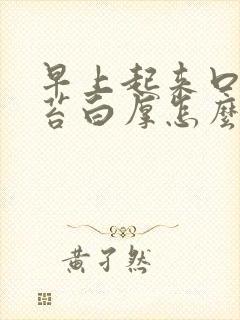 早上起来口
苔白厚怎麽
黄孑然